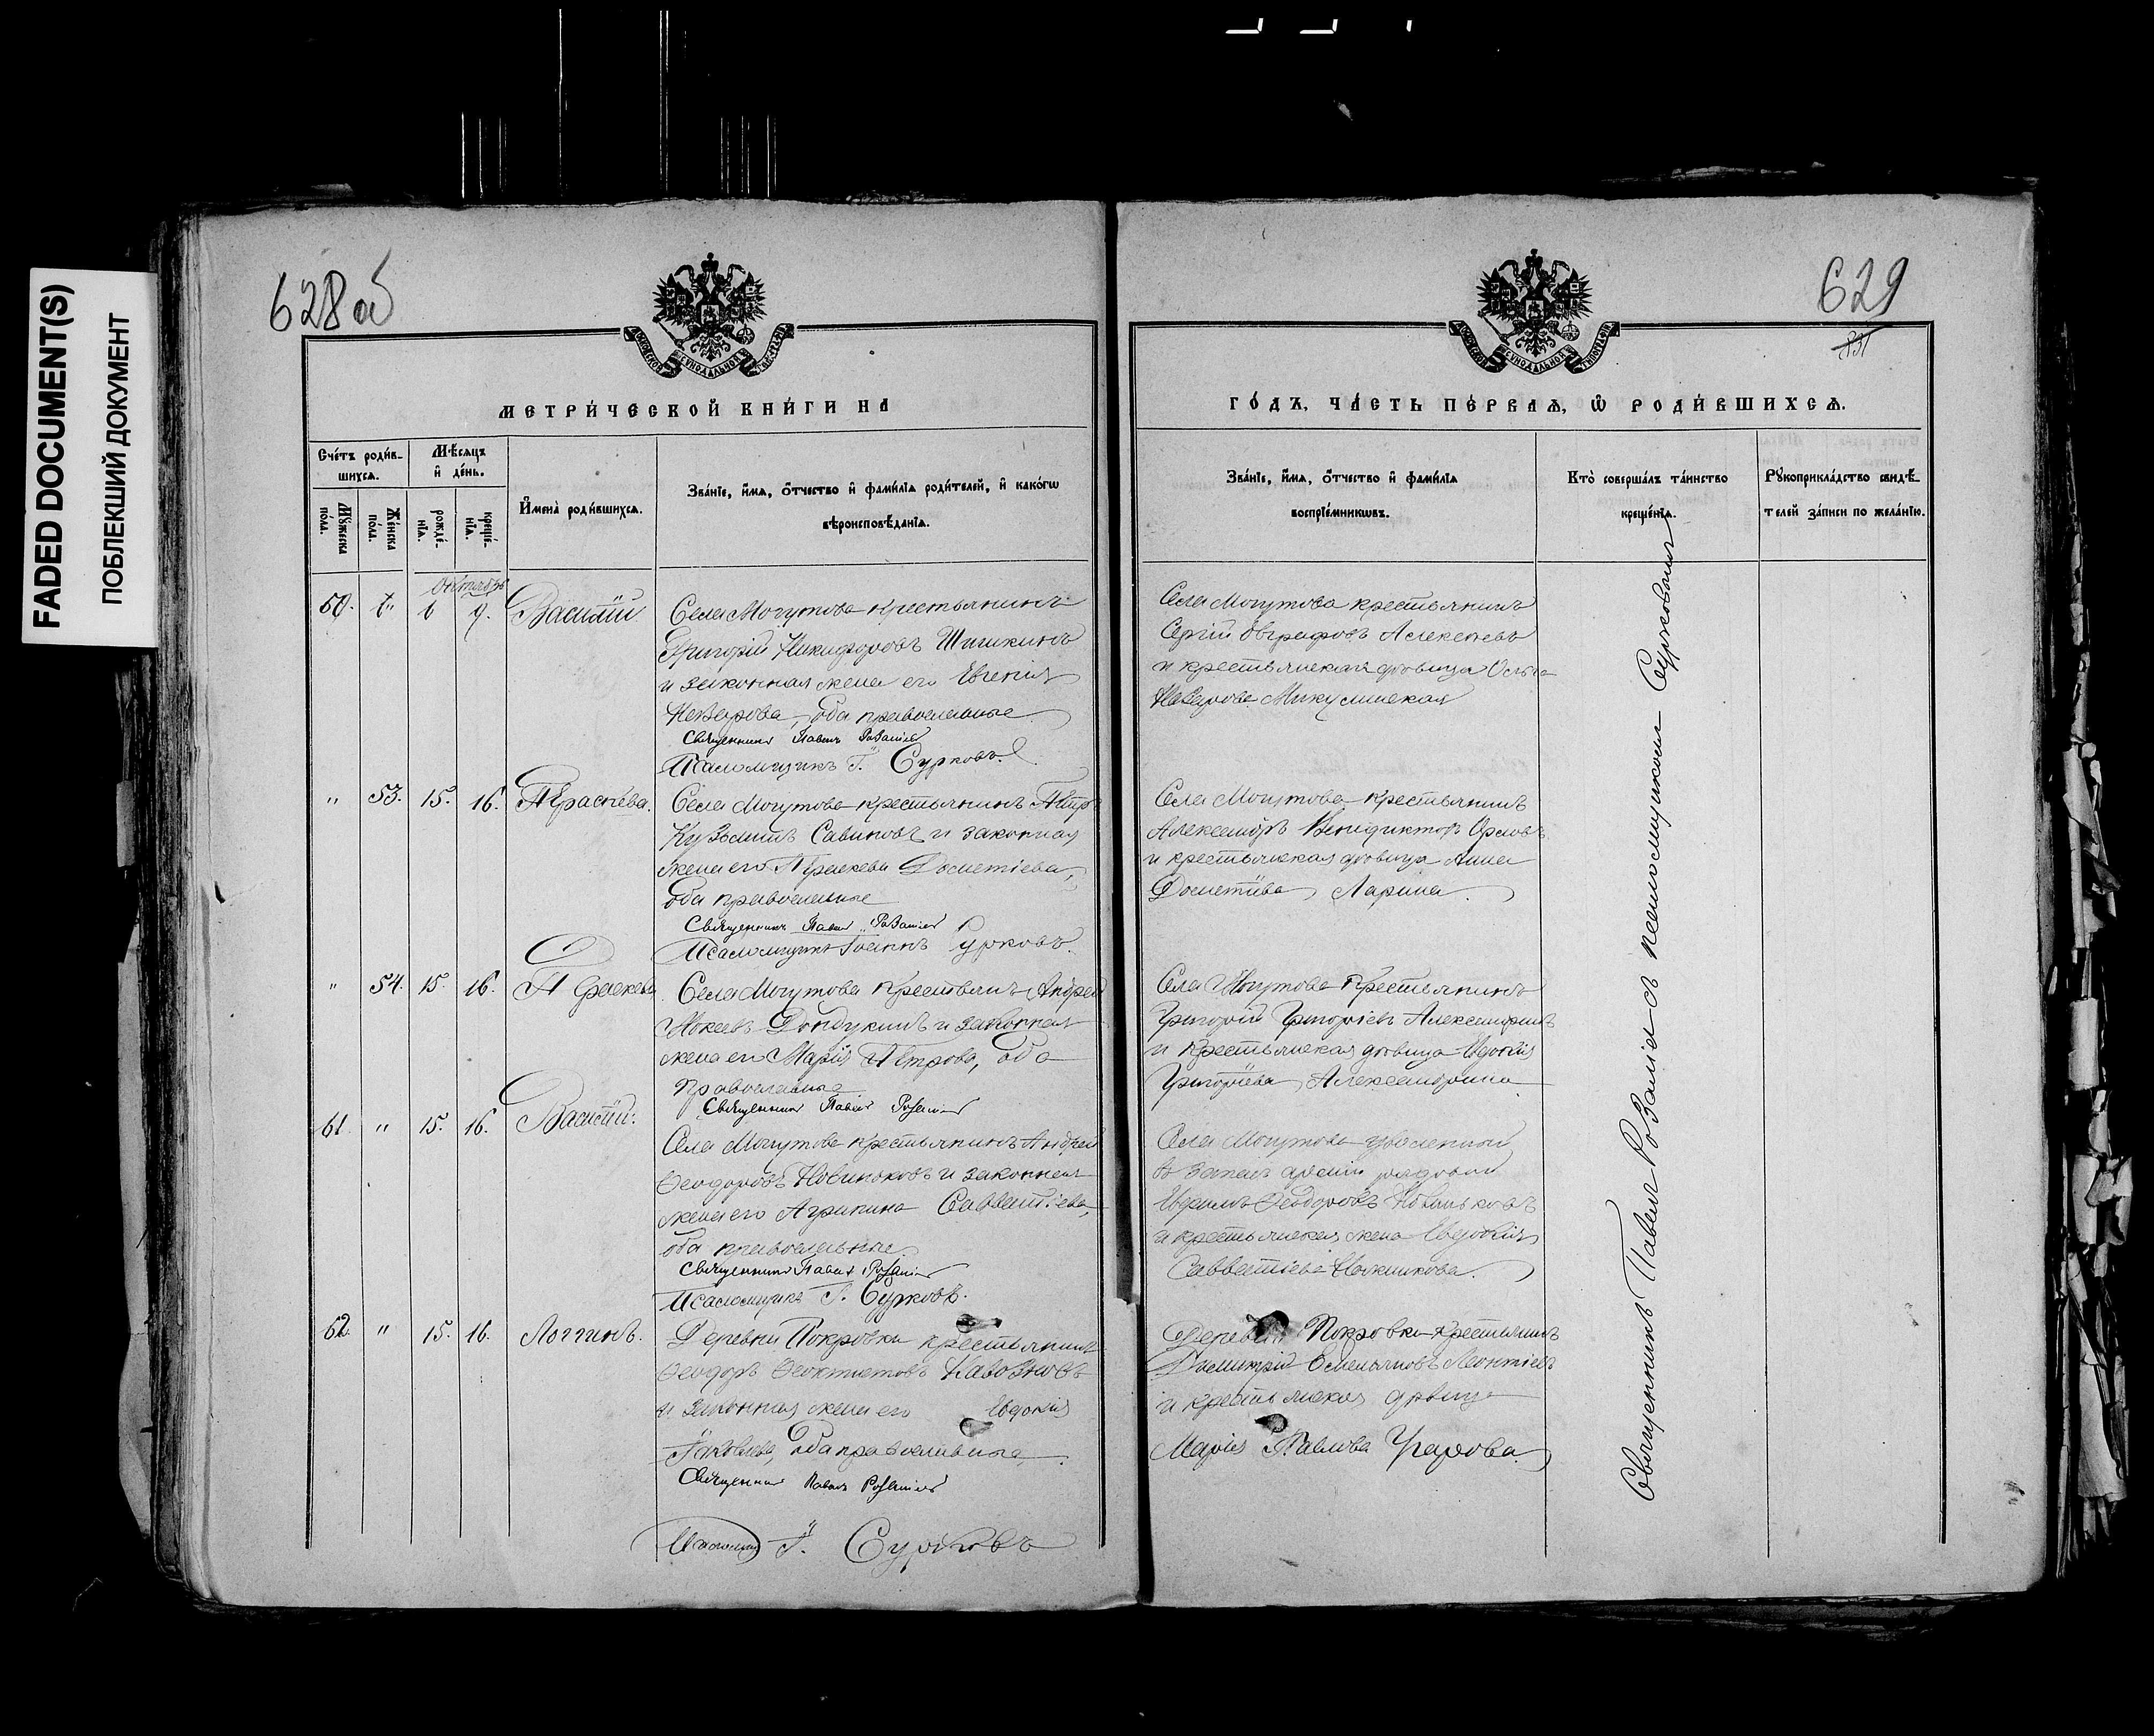 FADED DOCUMENT(S)
ПОБЛЕКШИЙ ДОКУМЕНТ
628 об
МЕТРИ́ЧЕСКОЙ КНИ́ГИ НА
Сче́тъ роди́вшихся.
Мѣ́сяцъ и҆ де́нь.
Мꙋ́жеска по́ла.
Же́нска по́ла.
рожде́нїя.
креще́нїя.
И҆мена̀ роди́вшихся.
Зва́нїе, и҆́мя, ѻ҆́тчество и҆ фами́лїя роди́телей, и҆ како́гѡ
вѣроисповѣ́данїя.
Октябрь
60. " 6 7. Василій
Села Могутова крестьянинъ
Григорій Никифоровъ Шишкинъ
и законная жена его Евгенія
оба православные
Священникъ Павелъ Розаліевъ
Псаломщикъ І. Сурковъ.
" 53. 15. 16. Параскева.
Села Могутова крестьянинъ Петръ
Кузьминъ Савиновъ и законная
жена его Параскева Дометіева,
оба православные
Священникъ Павелъ Розаліевъ
Псаломщикъ Іоаннъ Сурковъ.
" 54. 15. 16. Параскева
Села Могутова крестьянинъ Андрей
Мокеевъ Дондукинъ и законная
жена его Марія Петрова, оба
Православные
Священникъ Павелъ Розаліевъ
61. " 15. 16. Василій.
Села Могутова крестьянинъ Андрей
Ѳеодоровъ Новиньковъ и законная
жена его Агрипина Савватіева,
оба православные.
Священникъ Павелъ Розаліевъ
Псаломщикъ І. Сурковъ.
62. " 15. 16. Логгинъ.
Деревни Покровки крестьянинъ
Ѳеодоръ Ѳеоктистовъ
и законная жена его Евдокія
Іаковлева, оба православные.
Священникъ Павелъ Розаліевъ
Псаломщикъ І. Сурковъ
629
831
ГО́ДЪ, ЧА́СТЬ ПЕ́РВАЯ, Ѽ РОДИ́ВШИХСЯ.
Зва́нїе, и҆́мя, ѻ҆́тчество и҆ фами́лїя
воспрїе́мникѡвъ.
Кто̀ соверша́лъ та́инство
креще́нїя.
Рꙋкоприкла́дство свидѣ́-
телей за́писи по жела́нїю.
Села Могутова крестьянинъ
Сергій Евграфовъ Алексеевъ
и крестьянская дѣвица Ольга
Микулинская
Села Могутова крестьянинъ
Александръ Венидиктовъ Орловъ
и крестьянская дѣвица Анна
Дометіева Ларина.
Села Могутова крестьянинъ
Григорій Григоріевъ Александринъ
и крестьянская дѣвица Евдокія
Григоріева Александрина
Села Могутова уволенный
въ запасъ арміи рядовой
Ѳеодоровъ Новиньковъ
и крестьянская жена Евдокія
Савватіева
Деревни Покровки крестьянинъ
Димитрій Емельяновъ Леонтіевъ
и крестьянская дѣвица
Марія Павлова
Священникъ Павелъ Розаліевъ съ псаломщикомъ Сурковымъ